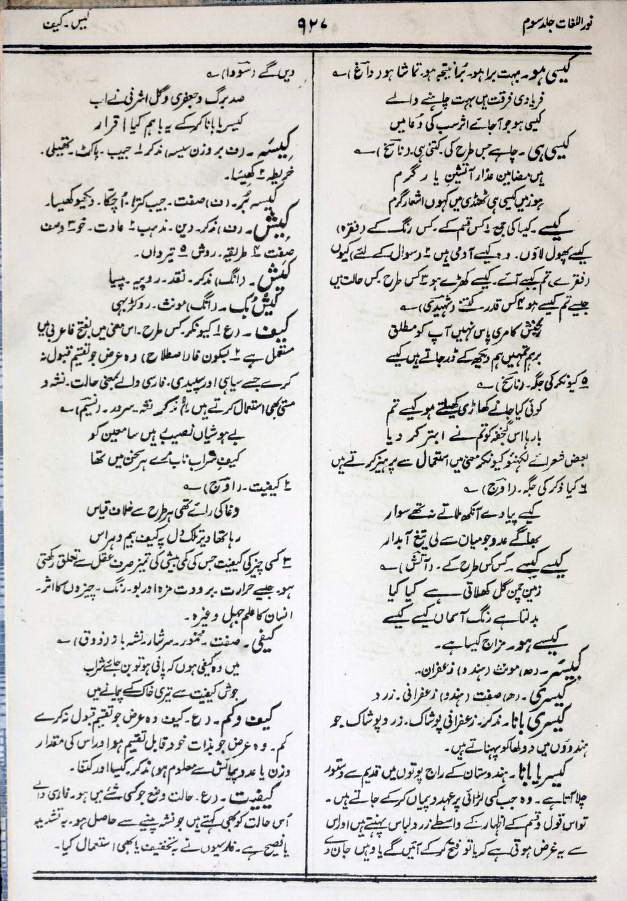 نور اللغات جلد سوم
۹۲۷
کیس ۔ کیف
کیسی ہو ۔ بہت برا ہو۔ بُرا نتیجہ ہو، تماشا ہو (داغ) ؎
فریادی فرقت ہیں بہت چاہنے والے
کیسی ہو جو آجائے اثر سب کی دعا میں
کیسی ہی ۔ چاہے جس طرح کی۔ کتنی ہی ۔ (ناسخ) ؎
ہیں مضامین عذار آتشین یار گرم
ہو زمیں کیسی ہی ٹھنڈی میں کہوں اشعار گرم
کیسے ۔ کیسا کی جمع ۱ کس قسم کے ۔ کس رنگ کے (فقرہ)
کیسے پھول لاؤں ۔ وہ کیسے آدمی ہیں ۲ (سوال کے لئے) کیوں
(فقرے) تم کیسے آئے۔ کیسے کھڑے ہو ۳ کس طرح ۔ کس حالت میں
جیسے تم کیسے ہو ۴ کس قدر کتنے (شہیدی) ؎
رنجش کا مری پاس نہیں آپ کو مطلق
برہم تمہیں ہم دیکھ کے ڈر جاتے ہیں کیسے
۵ کیونکر کی جگہ ۔ (ناسخ) ؎
کوئی کیا جانے کھلاڑی کھیلتے ہو کیسے تم
بارہا اس گنجفہ کو تم نے ابتر کر دیا
بعض شعرائے لکھنؤ کیونکر کے معنی میں استعمال سے پرہیز کرتے ہیں
۶ کیا ذکر کی جگہ ۔ (اوج) ؎
کیسے پیادے آنکھ ملاتے نہ تھے سوار
بھاگے عدو جو میان سے لی تیغ آبدار
کیسے کیسے ۔ کس کس طرح کے ۔ (آتش) ؎
زمین چمن گل کھلاتی ہے کیا کیا
بدلتا ہے رنگ آسماں کیسے کیسے
کیسے ہو ۔ مزاج کیسا ہے ۔
کیسر ۔ (ھ) مونث (ہندو) زعفران ۔
کیسری ۔ (ھ) صفت (ہندو) زعفرانی ۔ زرد
کیسری بانا ۔ مذکر ۔ زعفرانی پوشاک ۔ زرد پوشاک جو
ہندوؤں میں دولھا کو پہناتے ہیں ۔
کیسریا بانا ۔ ہندوستان کے راج پوتوں میں قدیم سے دستور
چلا آتا ہے ۔ وہ جب کسی لڑائی پر عہد و پیماں کر کے جاتے ہیں ۔
تو اس قول و قسم کے اظہار کے واسطے زرد لباس پہنتے ہیں اور اس
سے یہ غرض ہوتی ہے کہ یا تو فتح کر کے آئیں گے یا وہیں جان دے
دیں گے (سودا) ؎
صد برگ و جعفری و گل اشرفی نے اب
کیسریا بانا کر کے یہ باہم کیا اقرار
کیسہ ۔ (ف) بروزن سیسہ) مذکر ۱ جیب ۔ پاکٹ ۔ تھیلی ۔
خریطہ ۲ کھیسا ۔
کیسہ بُر ۔ (ف) صفت ۔ جیب کترا ۔ اُچکا ۔ دیکھو کھیسا ۔
کیش ۔ (ف) مذکر ۔ دین ۔ مذہب ۲ عادت ۔ خو ۳ وصف
صفت ۴ طریقہ ۔ روش ۵ تیرداں ۔
کیش ۔ (انگ) مذکر ۔ نقد ۔ روپیہ ۔ پیسا
کیش بک ۔ (انگ) مونث ۔ روکڑ بہی
کیف ۔ (ع) ۱ کیونکر ۔ کس طرح ۔ اس معنی میں بفتح فا عربی میں
مستعمل ہے ۲ (بسکون فا اصطلاح) وہ عرض جو تقسیم قبول نہ
کرے جیسے سیاہی اور سپیدی ۔ فارسی والے بمعنی حالت ۔ نشہ و
مستی بھی استعمال کرتے ہیں مذکر نشہ ۔ سرور ۔ (نسیم) ؎
بے ہوشیاں نصیب ہیں سامعین کو
کیف شراب ناب مرے ہر سخن میں تھا
۲ کیفیت ۔ (اوج) ؎
وغا کی رائے تھی ہر طرح سے خلاف قیاس
رہا تھا دیر تلک دل پہ کیف بیم و ہراس
۳ کسی چیز کی کیفیت جس کی کمی بیشی کی تمیز صرف عقل سے تعلق رکھتی
ہو ۔ جیسے حرارت برودت مزہ اور بو ۔ رنگ ۔ چیزوں کا اثر ۔
انسان کا علم جہل وغیرہ ۔
کیفی ۔ صفت ۔ مخمور ۔ سرشار ۔ نشہ باز (ذوق) ؎
میں وہ کیفی ہوں کہ پانی ہو تو بن جائے شراب
جوش کیفیت سے تیری خاک کے پیمانے میں
کیف و کم ۔ (ع) ۔ کیف وہ عرض جو تقسیم قبول نہ کرے
کم ۔ وہ عرض جو بذات خود قابل تقسیم ہو اور اس کی مقدار
وزن یا عدد پیمائش سے معلوم ہو) مذکر ۔ کیسا اور کتنا ۔
کیفیت ۔ (ع) ۔ حالت وضع جو کسی شے میں ہو ۔ فارسی والے
اُس حالت کو بھی کہتے ہیں جو نشہ پینے سے حاصل ہو ۔ بہ تشدید
یا فصیح ہے ۔ فارسیوں نے بہ تخفیف یا بھی استعمال کیا ۔